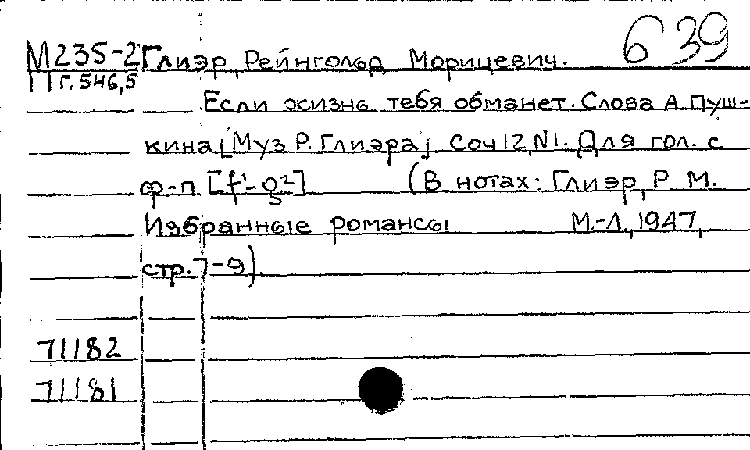 639
М235-2 Глиэр, Рейнгольд Морицевич.
Г.546,5
Если жизнь тебя обманет. Слова А. Пуш-
кина [Муз Р. Глиэра], Соч 12, N1. Для гол. с
ф-п. [f¹-g²] (В нотах: Глиэр, Р. М.
Избранные романсы М.-Л., 1947,
стр. 7-9)
71182
71181